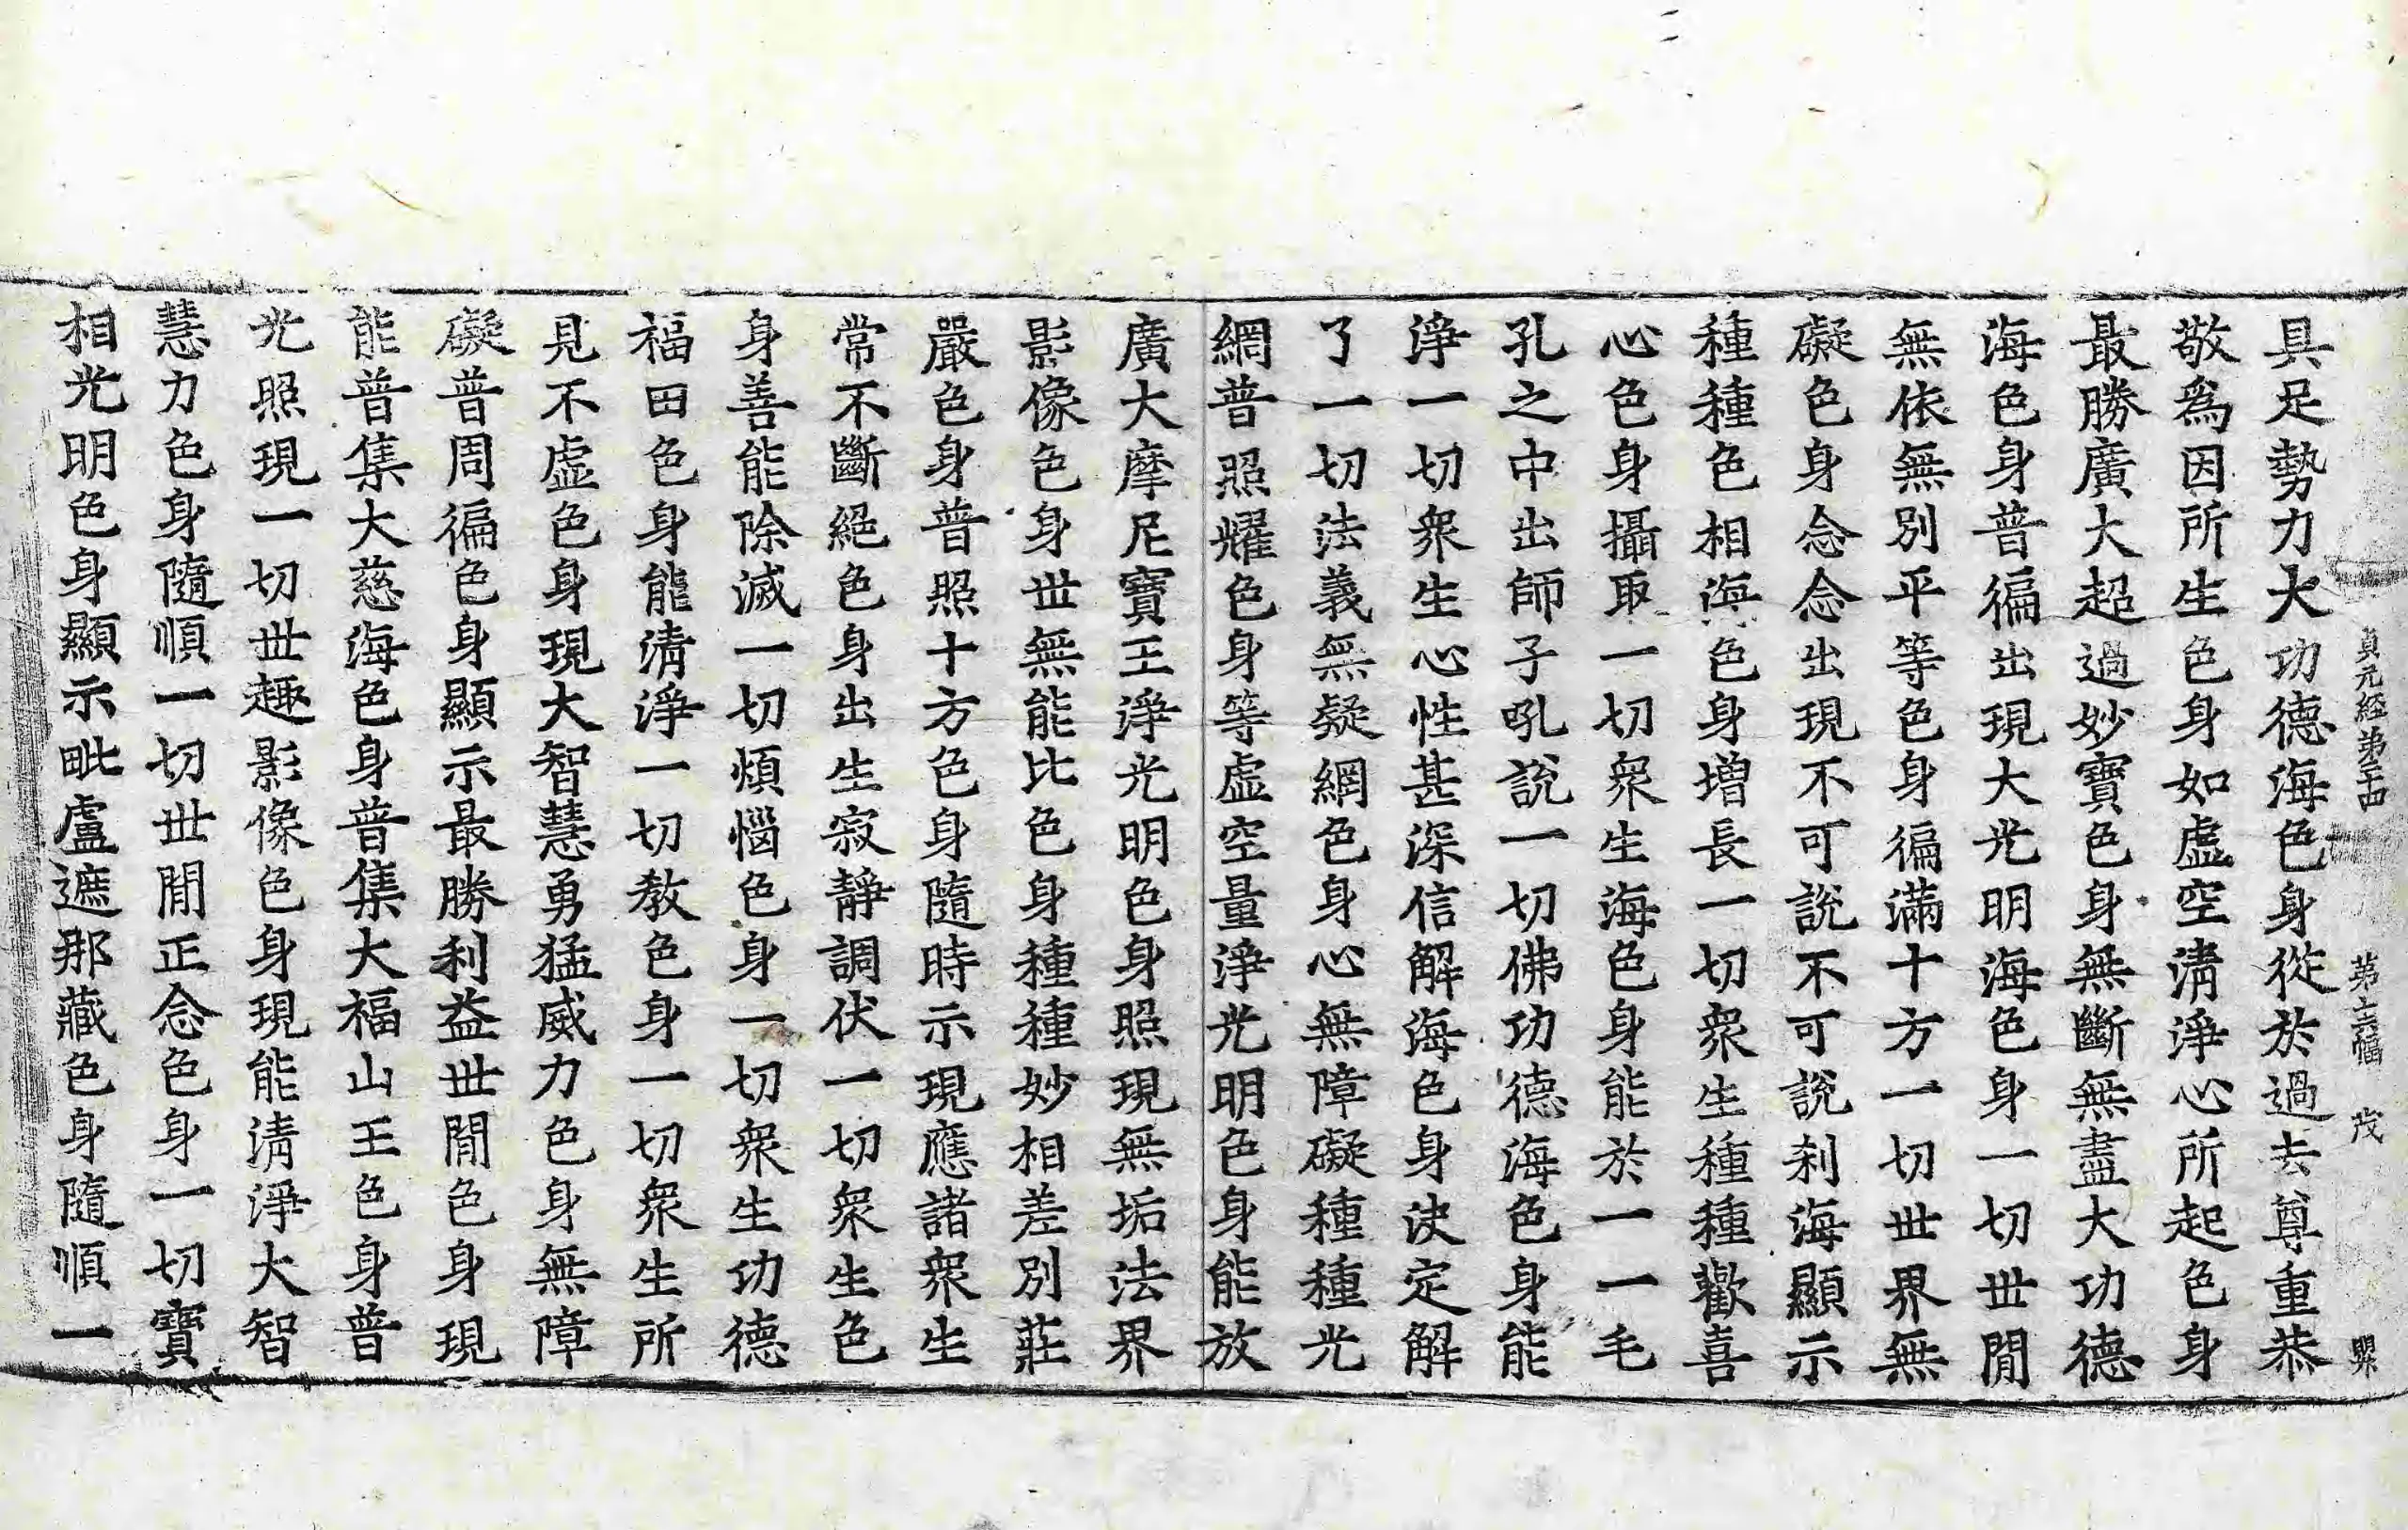 貞元經第二十四 第十六幅 茂
具足勢力大功德海色身從於過去尊重恭
敬為因所生色身如虛空清淨心所起色身
最勝廣大超過妙寶色身無斷無盡大功德
海色身普徧出現大光明海色身一切世間
無依無別平等色身徧滿十方一切世界無
礙色身念念出現不可說不可說刹海顯示
種種色相海色身增長一切衆生種種歡喜
心色身攝取一切衆生海色身能於一一毛
孔之中出師子吼說一切佛功德海色身能
淨一切衆生心性甚深信解海色身決定解
了一切法義無疑網色身心無障礙種種光
網普照耀色身等虛空量淨光明色身能放
廣大摩尼寶王淨光明色身照現無垢法界
影像色身世無能比色身種種妙相差別莊
嚴色身普照十方色身隨時示現應諸衆生
常不斷絕色身出生寂靜調伏一切衆生色
身善能除滅一切煩惱色身一切衆生功德
福田色身能清淨一切教色身一切衆生所
見不虛色身現大智慧勇猛威力色身無障
礙普周徧色身顯示最勝利益世間色身現
能普集大慈海色身普集大福山王色身普
光照現一切世趣影像色身現能清淨大智
慧力色身隨順一切世間正念色身一切寶
相光明色身顯示毗盧遮那藏色身隨順一